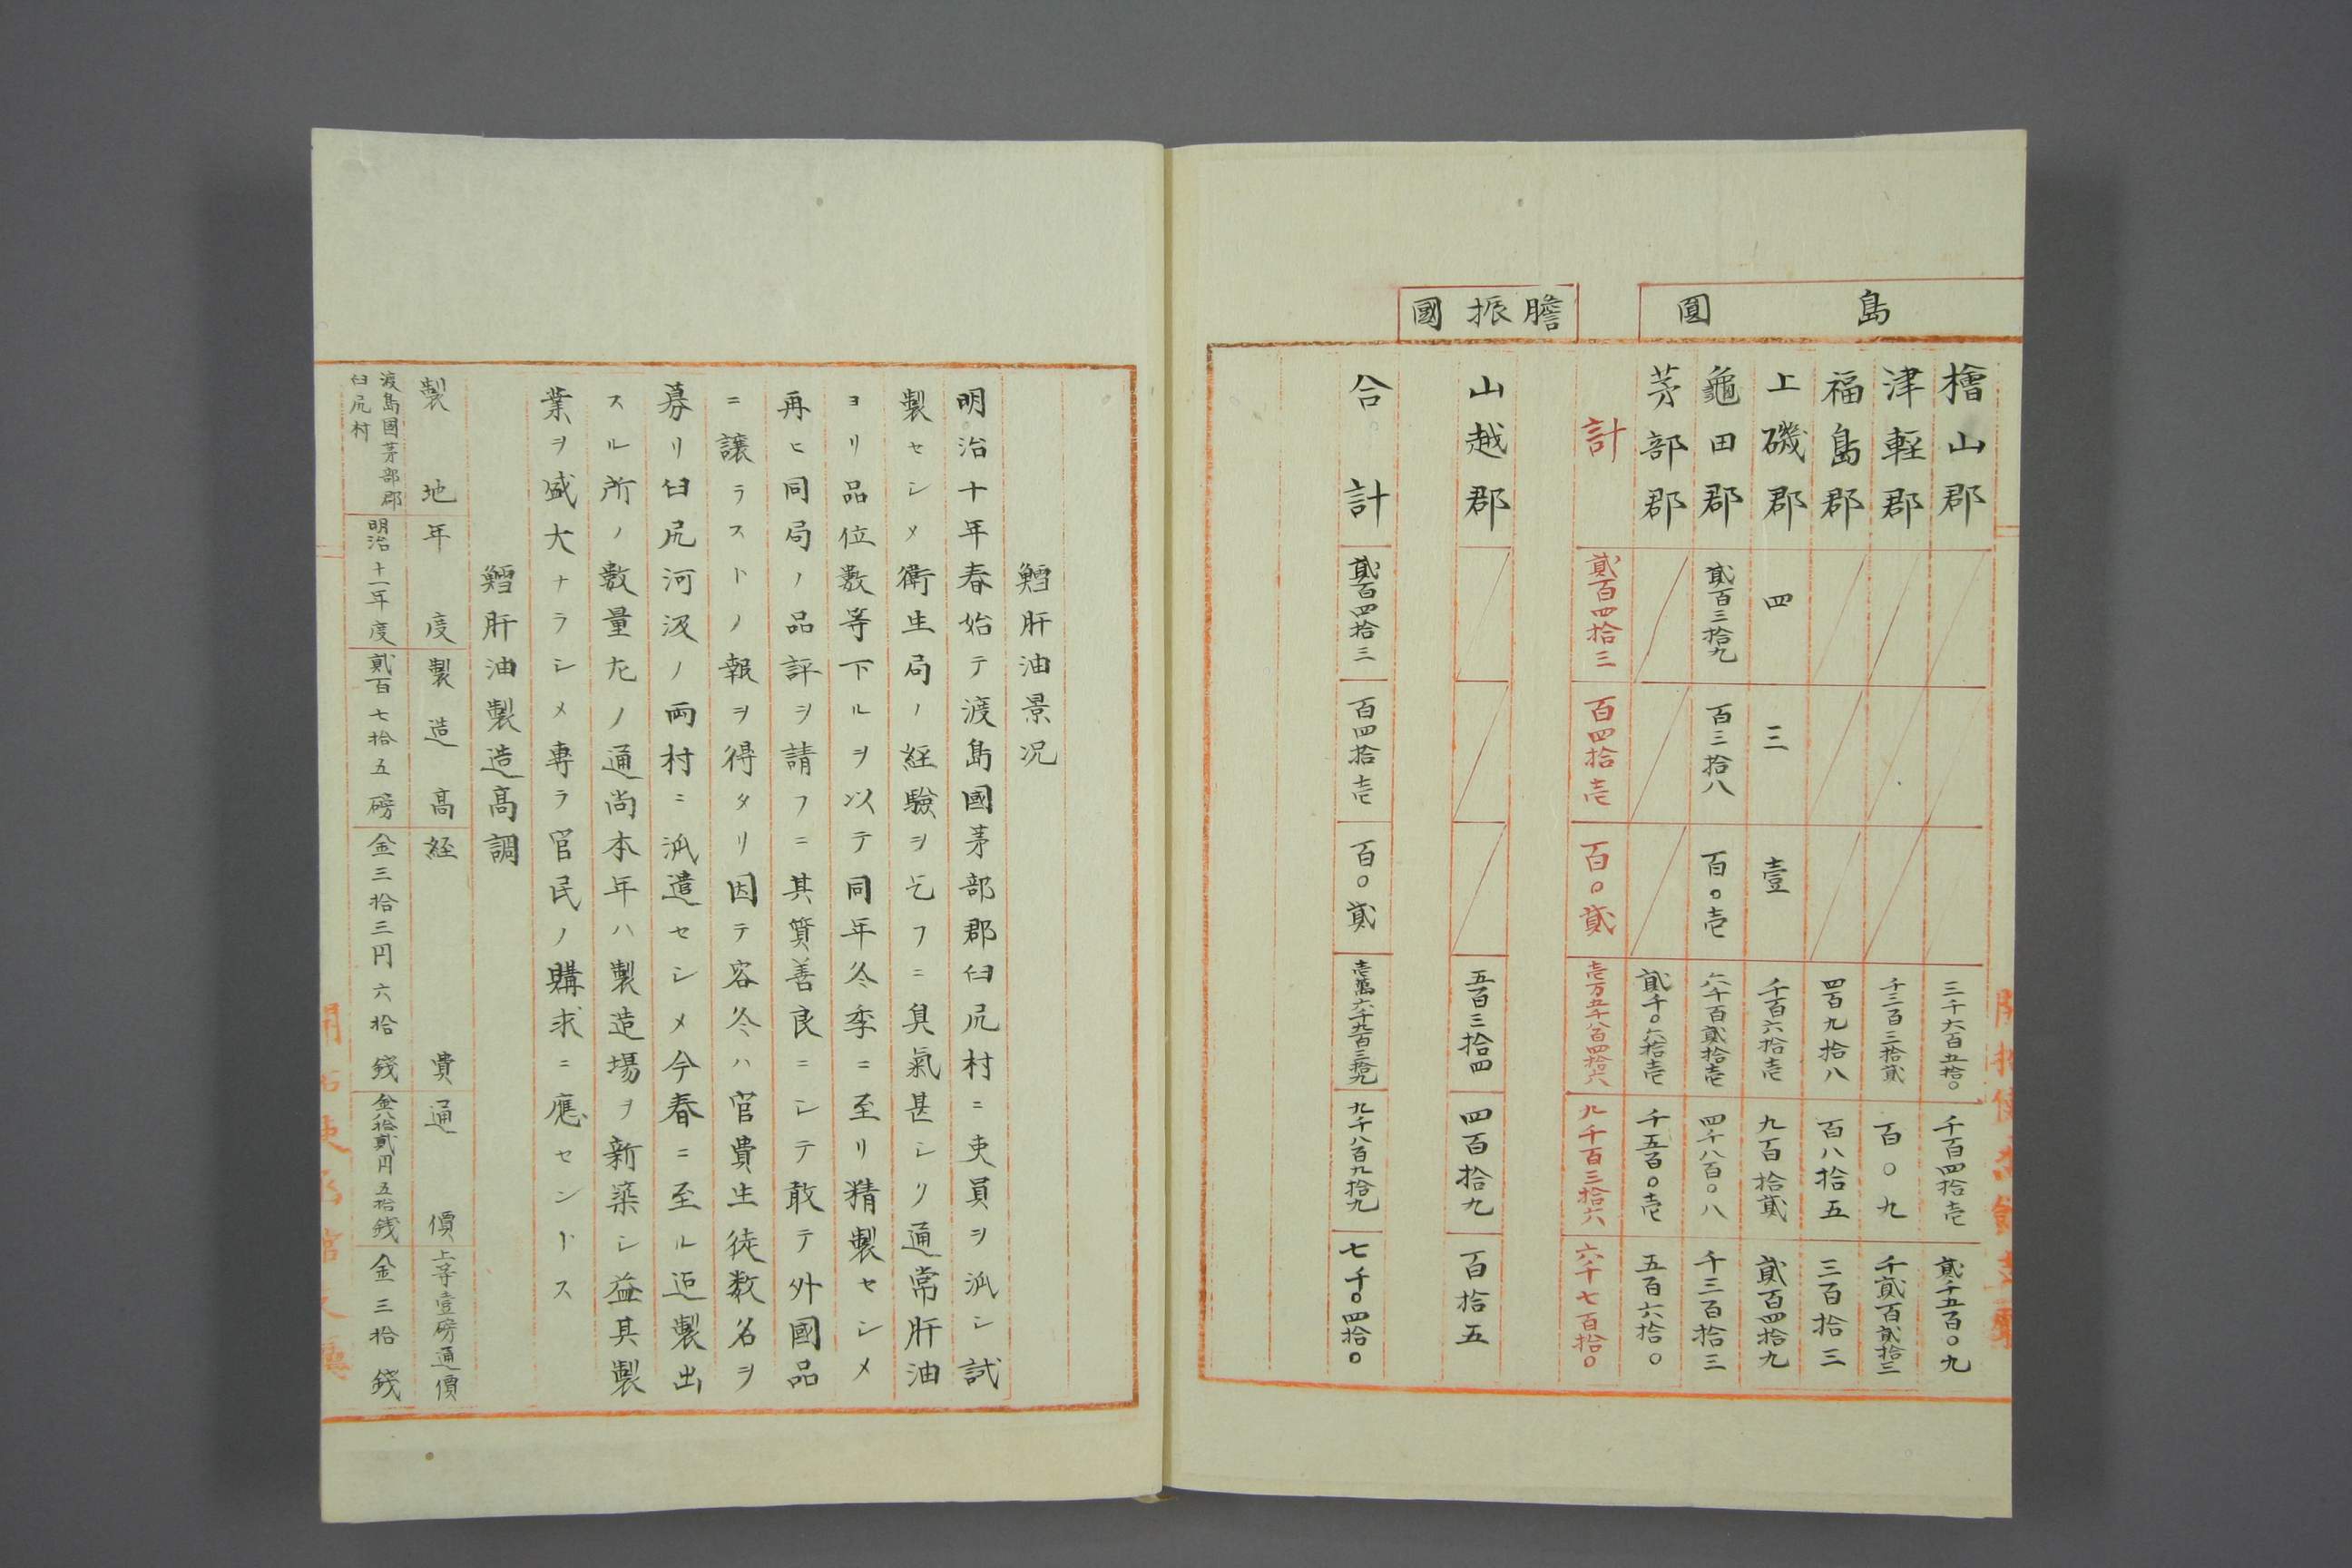 島　國
檜山郡　三千六百五拾〇　千百四拾壱　貳千五百〇九
津軽郡　千三百三拾貳　百〇九　千貳百貳拾三
福島郡　四百九拾八　百八拾五　三百拾三
上磯郡　四　三　壹　千百六拾壱　九百拾貳　貳百四拾九
龜田郡　貳百三拾九　百三拾八　百〇壱　六千百貳拾壱　四千八百〇八　千三百拾三
茅部郡　貳千〇六拾壱　千五百〇壱　五百六拾〇
計　貳百四拾三　百四拾壱　百〇貳　壱万五千八百四拾六　九千百三拾六　六千七百拾〇
膽振國
山越郡　五百三拾四　四百拾九　百拾五
合計　貳百四拾三　百四拾壱　百〇貳　壱萬六千九百三拾九　九千八百九拾九　七千〇四拾〇
鱈肝油景况
明治十年春始テ渡島國茅部郡臼尻村ニ吏員ヲ派シ試
製セシメ衛生局ノ経驗ヲ乞フニ臭氣甚シク通常肝油
ヨリ品位數等下ルヲ以テ同年冬季ニ至リ精製セシメ
再ヒ同局ノ品評ヲ請フニ其質善良ニシテ敢テ外國品
ニ讓ラストノ報ヲ得タリ因テ客冬ハ官費生徒数名ヲ
募リ臼尻河汲ノ両村ニ派遣セシメ今春ニ至ル迄製出
スル所ノ數量左ノ通尚本年ハ製造場ヲ新築シ益其製
業ヲ盛大ナラシメ專ラ官民ノ購求ニ應セントス
鱈肝油製造高調
製地　年度　製造高　経費　通價　上等壹磅通價
渡島國茅部郡
臼尻村　明治十一年度　貳百七拾五磅　金三拾三円六拾錢　金八拾貳円五拾錢　金三拾錢